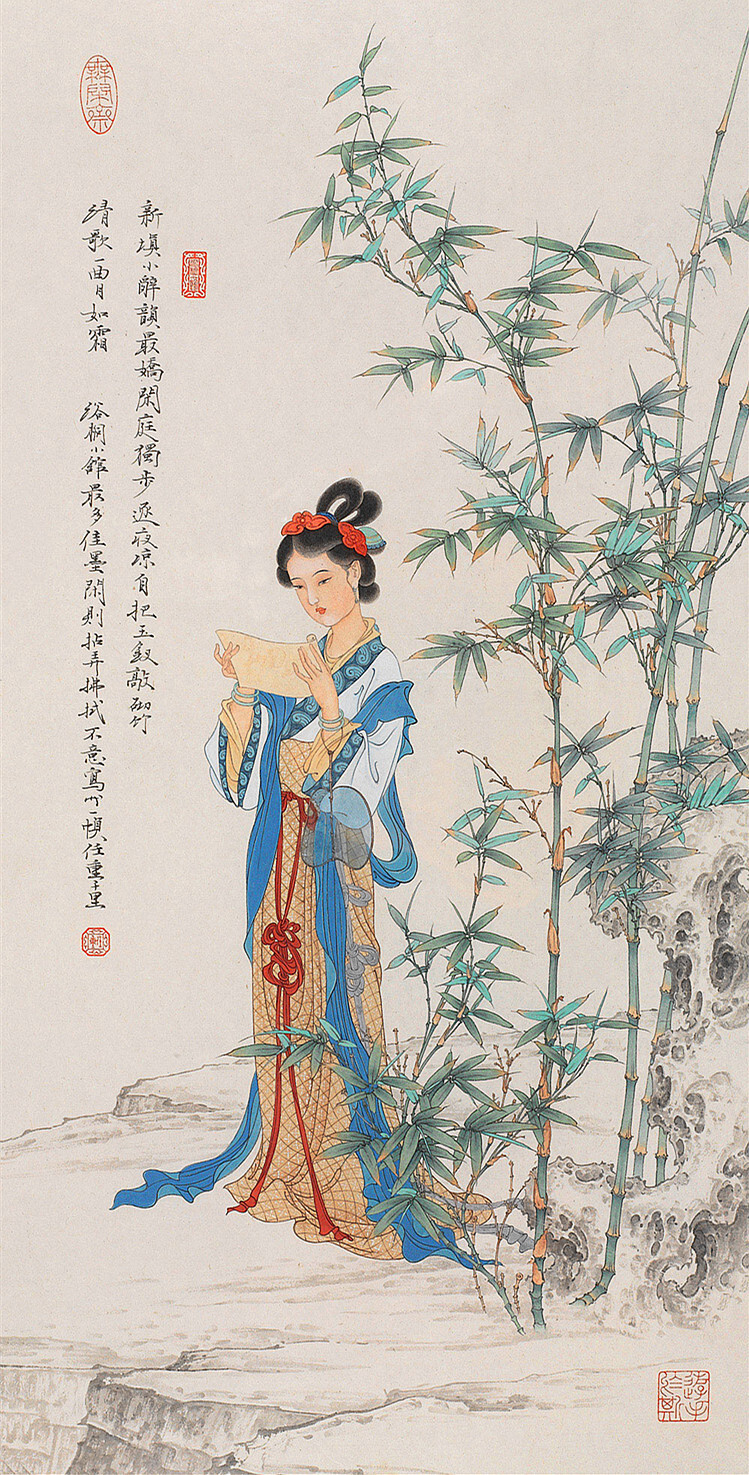 新填小辭韻最嬌閑庭獨步逐夜凉自把玉釵敲砌竹
清歌一曲月如霜 浴桐小館最多佳墨閑則拈弄拂拭不意寫此一幀任重